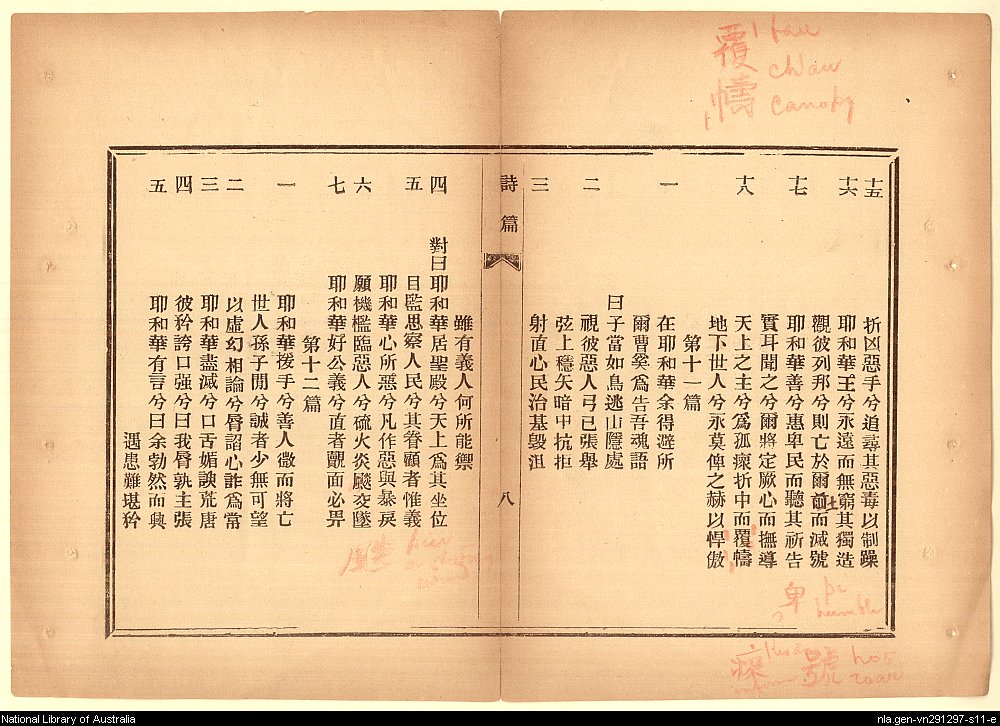 覆 fau
幬 chau
canopy
十五 折凶惡手兮追尋其惡毒以制躁
十六 耶和華王兮永遠而無窮其獨造
觀彼列邦兮則亡於爾土而滅號
十七 耶和華善兮惠卑民而聽其祈告
實耳聞之兮爾將定厥心而撫導
十八 天上之主兮爲孤瘝折中而覆幬
地下世人兮永莫俾之赫以悍傲
第十一篇
一 在耶和華余得避所
爾曹奚爲告吾魂語
曰子當如鳥逃山隱處
二 視彼惡人弓已張舉
弦上穩矢暗中抗拒
三 射直心民治基毀沮
詩篇 八
雖有義人何所能禦
四 對曰耶和華居聖殿兮天上爲其坐位
五 目監思察人民兮其眷顧者惟義
耶和華心所惡兮凡作惡與暴戾
六 願機檻臨惡人兮硫火炎飈交墜
七 耶和華好公義兮直者覿面必畀
第十二篇
一 耶和華援手兮善人微而將亡
世人孫子閒兮誠者少無可望
二 以虛幻相論兮脣諂心詐爲常
三 耶和華盡滅兮口舌媚談荒唐
四 彼矜誇口强兮曰我脣孰主張
五 耶和華有言兮曰余勃然而興
遇患難堪矜
卑 humble
瘝
號 roar
National Library of Australia
nla.gen-vn291297-s11-e